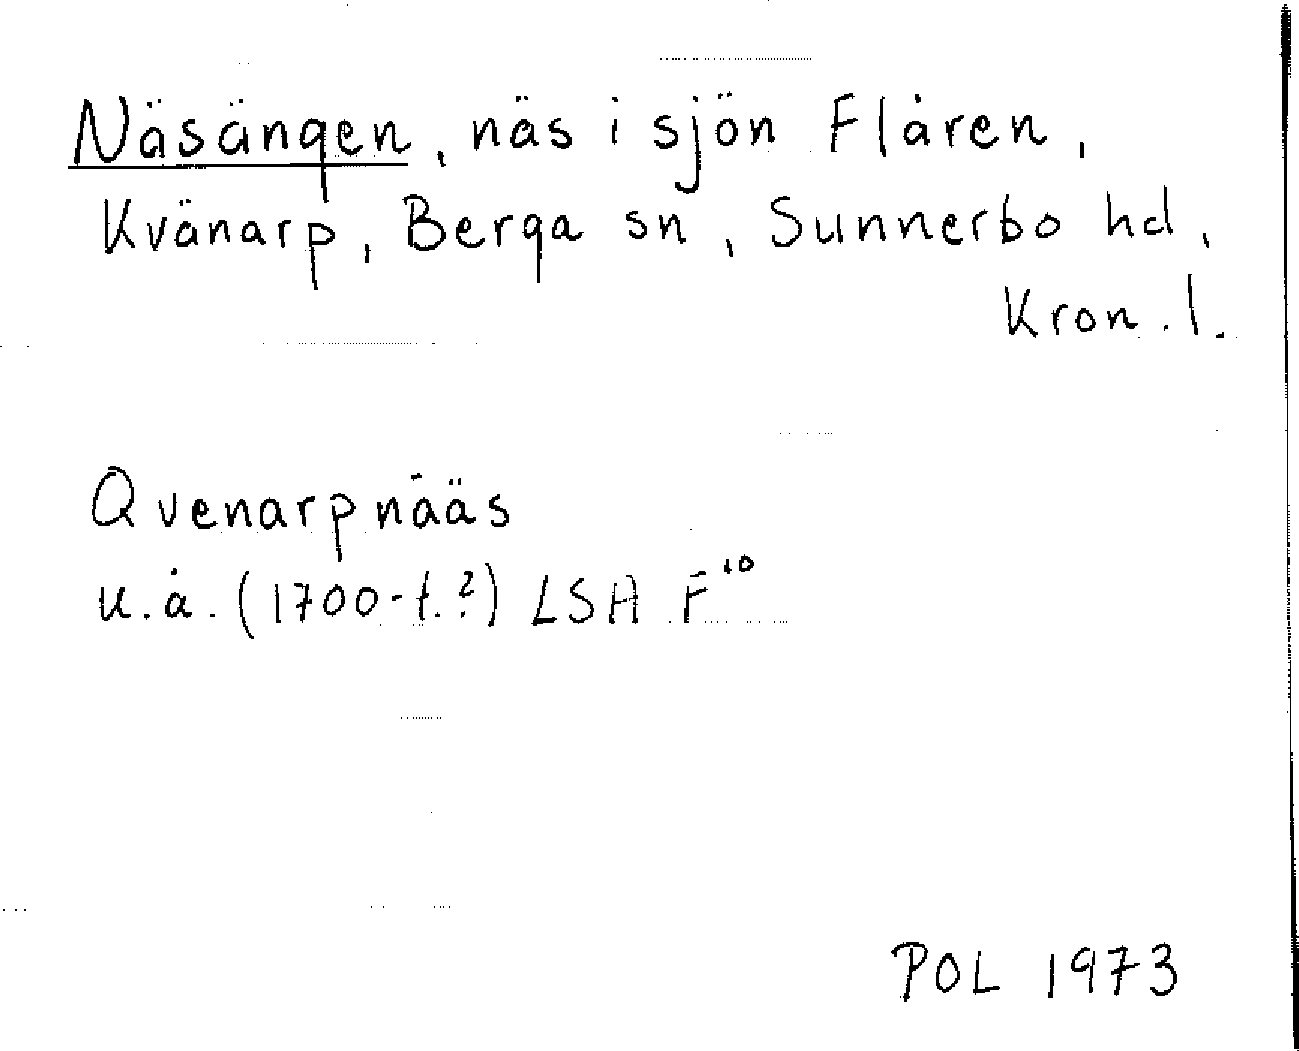 Näsängen, näs i sjön Flåren,
Kvänarp, Berga sn, Sunnerbo hd,
Kron. l.
Qvenarpnääs
u.å. (1700-t.?) LSA F¹⁰
POL 1973